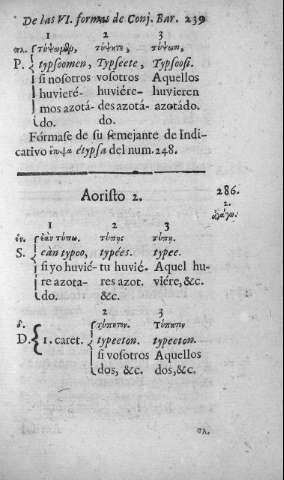 De las VI. formas de Conj. Bar. 239
1 2 3
πλ. τύψωμϑυ, τύψητε, τύψωσι,
P. typsoomen, Typseete, Typsoosi.
si nosotros vosotros Aquellos
huvieré- huviére- huvieren
mos azotá- des azotá- azotádo.
do. do.
Fórmase de su semejante de Indi-
cativo ἔτυψα étypsa del num. 248.
Aoristo 2. 286.
2.
1 2 3
ἑν. ἐὰν τύπω. τύπῃς τύπῃ.
S. eàn typoo, typées. typee.
si yo huvié- tu huvié- Aquel hu-
re azota- res azot. viére, &c.
do. &c.
2 3
δ. τύπητον. Τύπητον
D. 1. caret. typeeton. typeeton.
si vosotros Aquellos
dos, &c. dos, &c.
πλ.